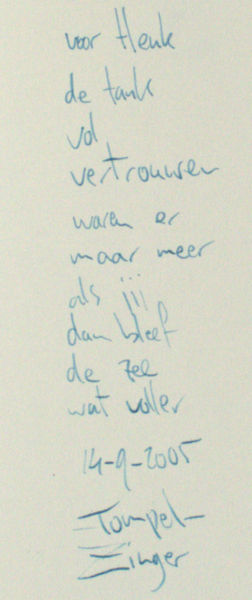 voor Henk
de tank
vol
vertrouwen
waren er
maar meer
als jij
dan bleef
de zee
wat voller
14-9-2005
Tompel-
Zinger